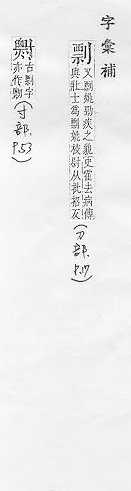 字彙補
剽
又剽姚勁疾之皃史霍去病傳
與壯士爲剽姚校尉从批招反
(刀部, P.17)
古剽字
亦作剽
(寸部, P.53)